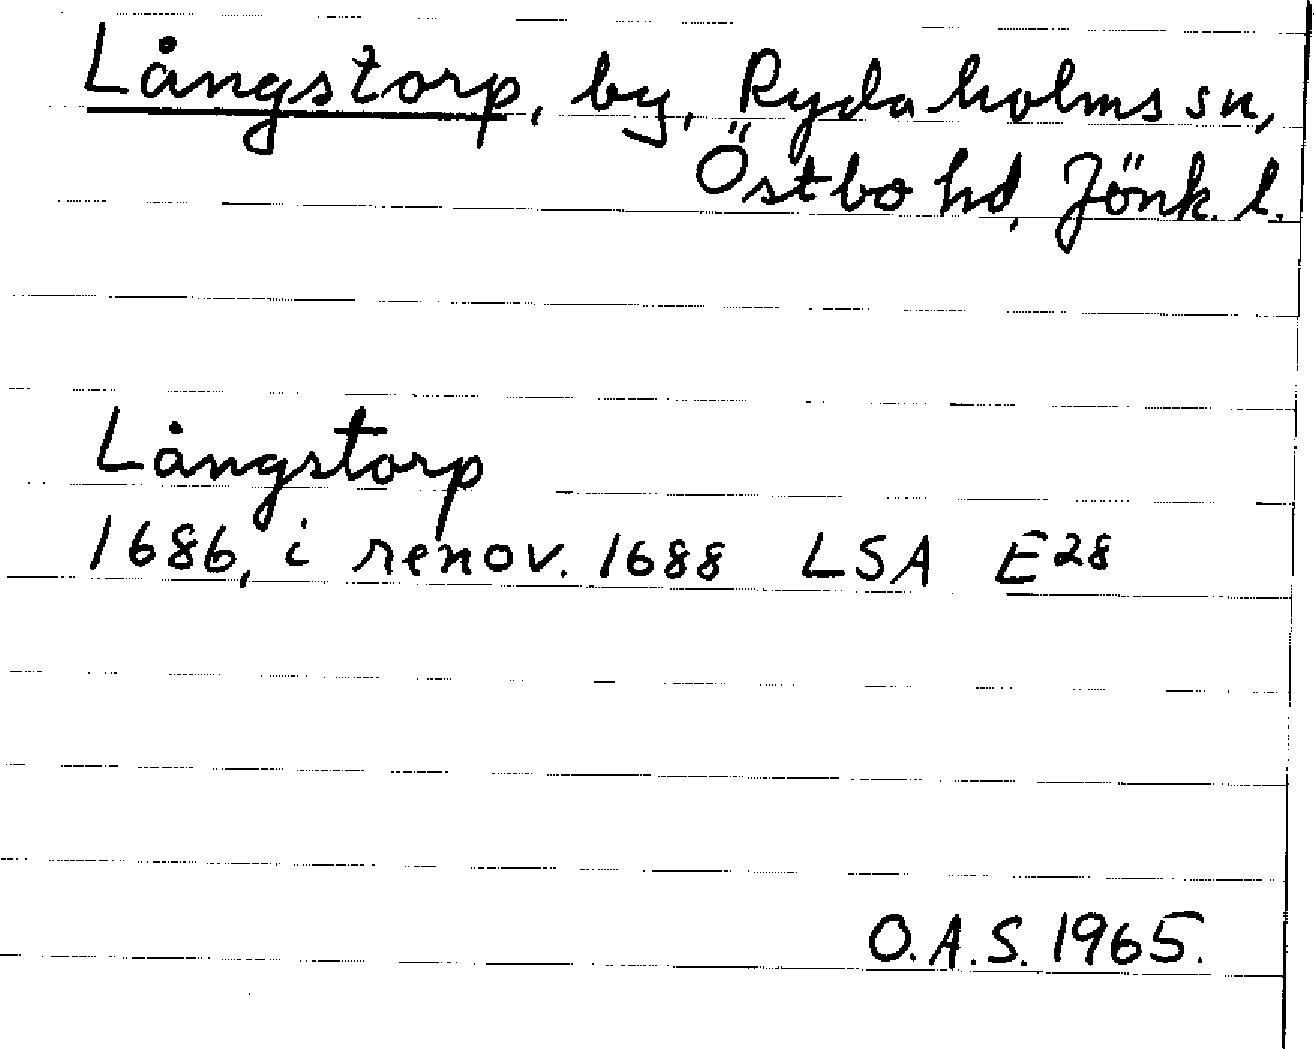 Långstorp, by, Rydaholms sn,
Östbo hd, Jönk. l.
Långstorp
1686, i renov. 1688 LSA E28
O.A.S. 1965.